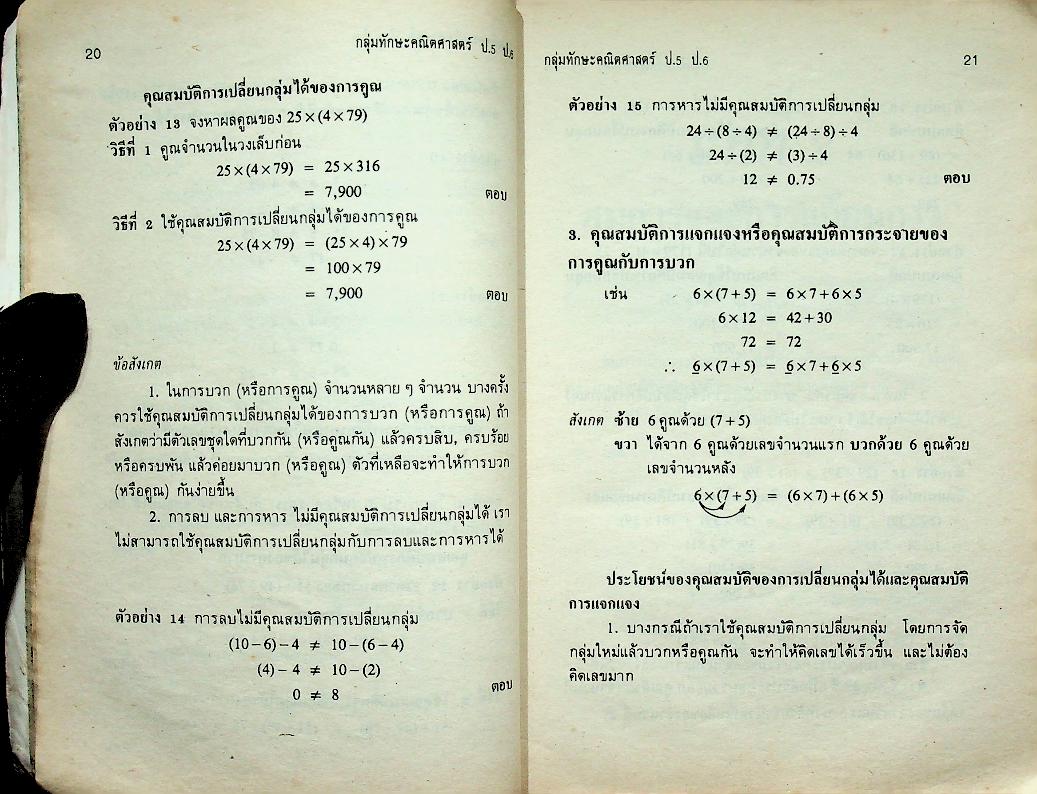 20
กลุ่มทักษะคณิตศาสตร์ ป.5 ป.6
คุณสมบัติการเปลี่ยนกลุ่มได้ของการคูณ
ตัวอย่าง 13 จงหาผลคูณของ 25×(4×79)
วิธีที่ 1 คูณจำนวนในวงเล็บก่อน
25×(4×79) = 25×316
= 7,900 ตอบ
วิธีที่ 2 ใช้คุณสมบัติการเปลี่ยนกลุ่มได้ของการคูณ
25×(4×79) = (25×4)×79
= 100×79
= 7,900 ตอบ
ข้อสังเกต
1. ในการบวก (หรือการคูณ) จำนวนหลาย ๆ จำนวน บางครั้ง
ควรใช้คุณสมบัติการเปลี่ยนกลุ่มได้ของการบวก (หรือการคูณ) ถ้า
สังเกตว่ามีตัวเลขชุดใดที่บวกกัน (หรือคูณกัน) แล้วครบสิบ, ครบร้อย
หรือครบพัน แล้วค่อยมาบวก (หรือคูณ) ตัวที่เหลือจะทำให้การบวก
(หรือคูณ) กันง่ายขึ้น
2. การลบ และการหาร ไม่มีคุณสมบัติการเปลี่ยนกลุ่มได้ เรา
ไม่สามารถใช้คุณสมบัติการเปลี่ยนกลุ่มกับการลบและการหารได้
ตัวอย่าง 14 การลบไม่มีคุณสมบัติการเปลี่ยนกลุ่ม
(10−6)−4 ≠ 10−(6−4)
(4)−4 ≠ 10−(2)
0 ≠ 8 ตอบ
กลุ่มทักษะคณิตศาสตร์ ป.5 ป.6
21
ตัวอย่าง 15 การหารไม่มีคุณสมบัติการเปลี่ยนกลุ่ม
24÷(8÷4) ≠ (24÷8)÷4
24÷(2) ≠ (3)÷4
12 ≠ 0.75 ตอบ
3. คุณสมบัติการแจกแจงหรือคุณสมบัติการกระจายของ
การคูณกับการบวก
เช่น 6×(7+5) = 6×7+6×5
6×12 = 42+30
72 = 72
∴ 6×(7+5) = 6×7+6×5
สังเกต ซ้าย 6 คูณด้วย (7+5)
ขวา ได้จาก 6 คูณด้วยเลขจำนวนแรก บวกด้วย 6 คูณด้วย
เลขจำนวนหลัง
6×(7+5) = (6×7)+(6×5)
ประโยชน์ของคุณสมบัติของการเปลี่ยนกลุ่มได้และคุณสมบัติ
การแจกแจง
1. บางกรณีถ้าเราใช้คุณสมบัติการเปลี่ยนกลุ่ม โดยการจัด
กลุ่มใหม่แล้วบวกหรือคูณกัน จะทำให้คิดเลขได้เร็วขึ้น และไม่ต้อง
คิดเลขมาก